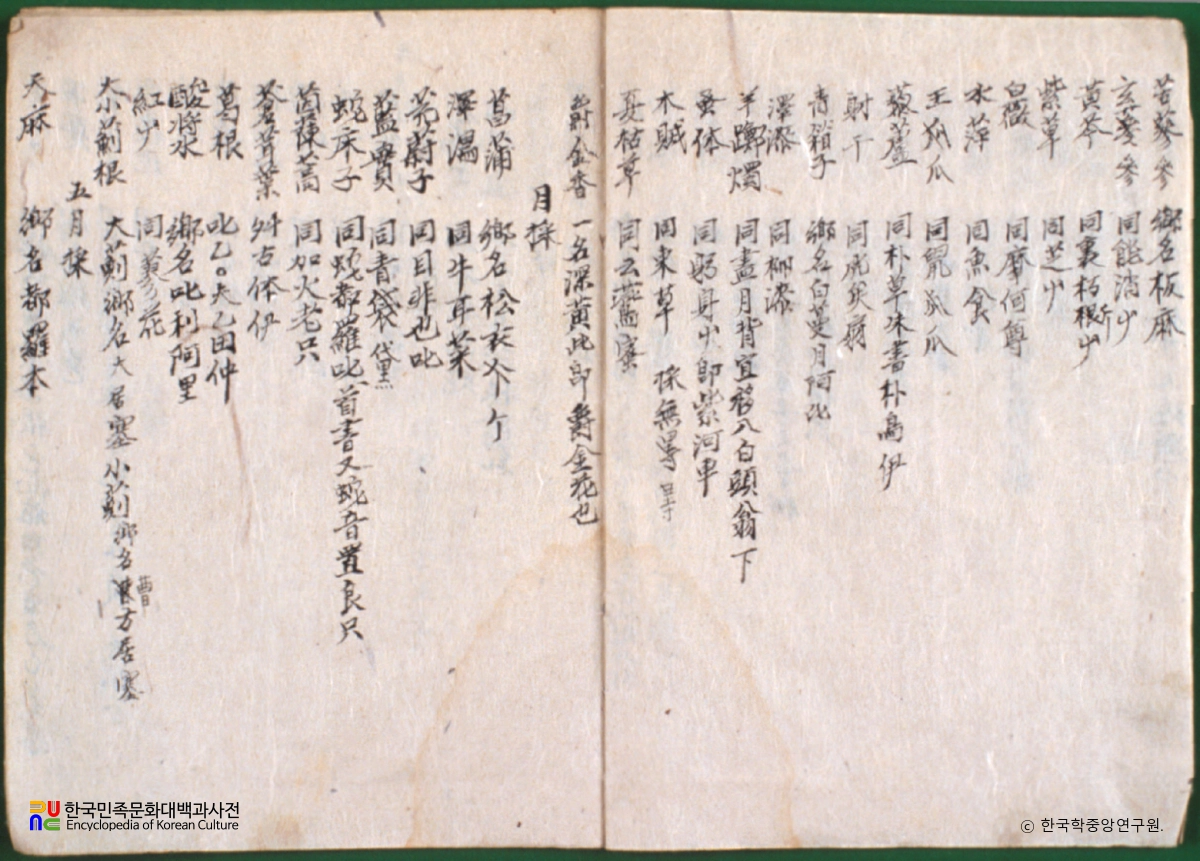 苦蔘 鄕名板麻
玄蔘 同能消小
黃芩 同裏朽斤根小
紫草 同芝小
白薇 同摩何尊
水萍 同魚食
王瓜 同鼠瓜
藜蘆 同朴草味書朴鳥伊
射干 同虎矣扇
靑箱子 鄕名白蔓月阿比
澤漆 同柳漆
羊躑燭 同盡月背宜 八白頭翁下
蚤休 同躬身小卽紫河車
木賊 同束草 採無
夏枯草 同
欝金香 一名深黃此卽欝金花也
月採
菖蒲 鄕名松衣亇
澤濕 同牛耳菜
茺蔚子 同目非也叱
藍實 同靑袋 黛
蛇床子 同蛇都羅叱 首書又蛇音置良只
茵蔯蒿 同加火老只
蒼耳葉 升古体伊
葛根 叱乙○夫乙田仲
酸漿水 鄕名叱利阿里
紅小 同 花
大小薊根 大薊鄕名大居塞小薊鄕名曹方居塞
五月採
天麻 鄕名都羅本
한국민족문화대백과사전
Encyclopedia of Korean Culture
ⓒ 한국학중앙연구원.